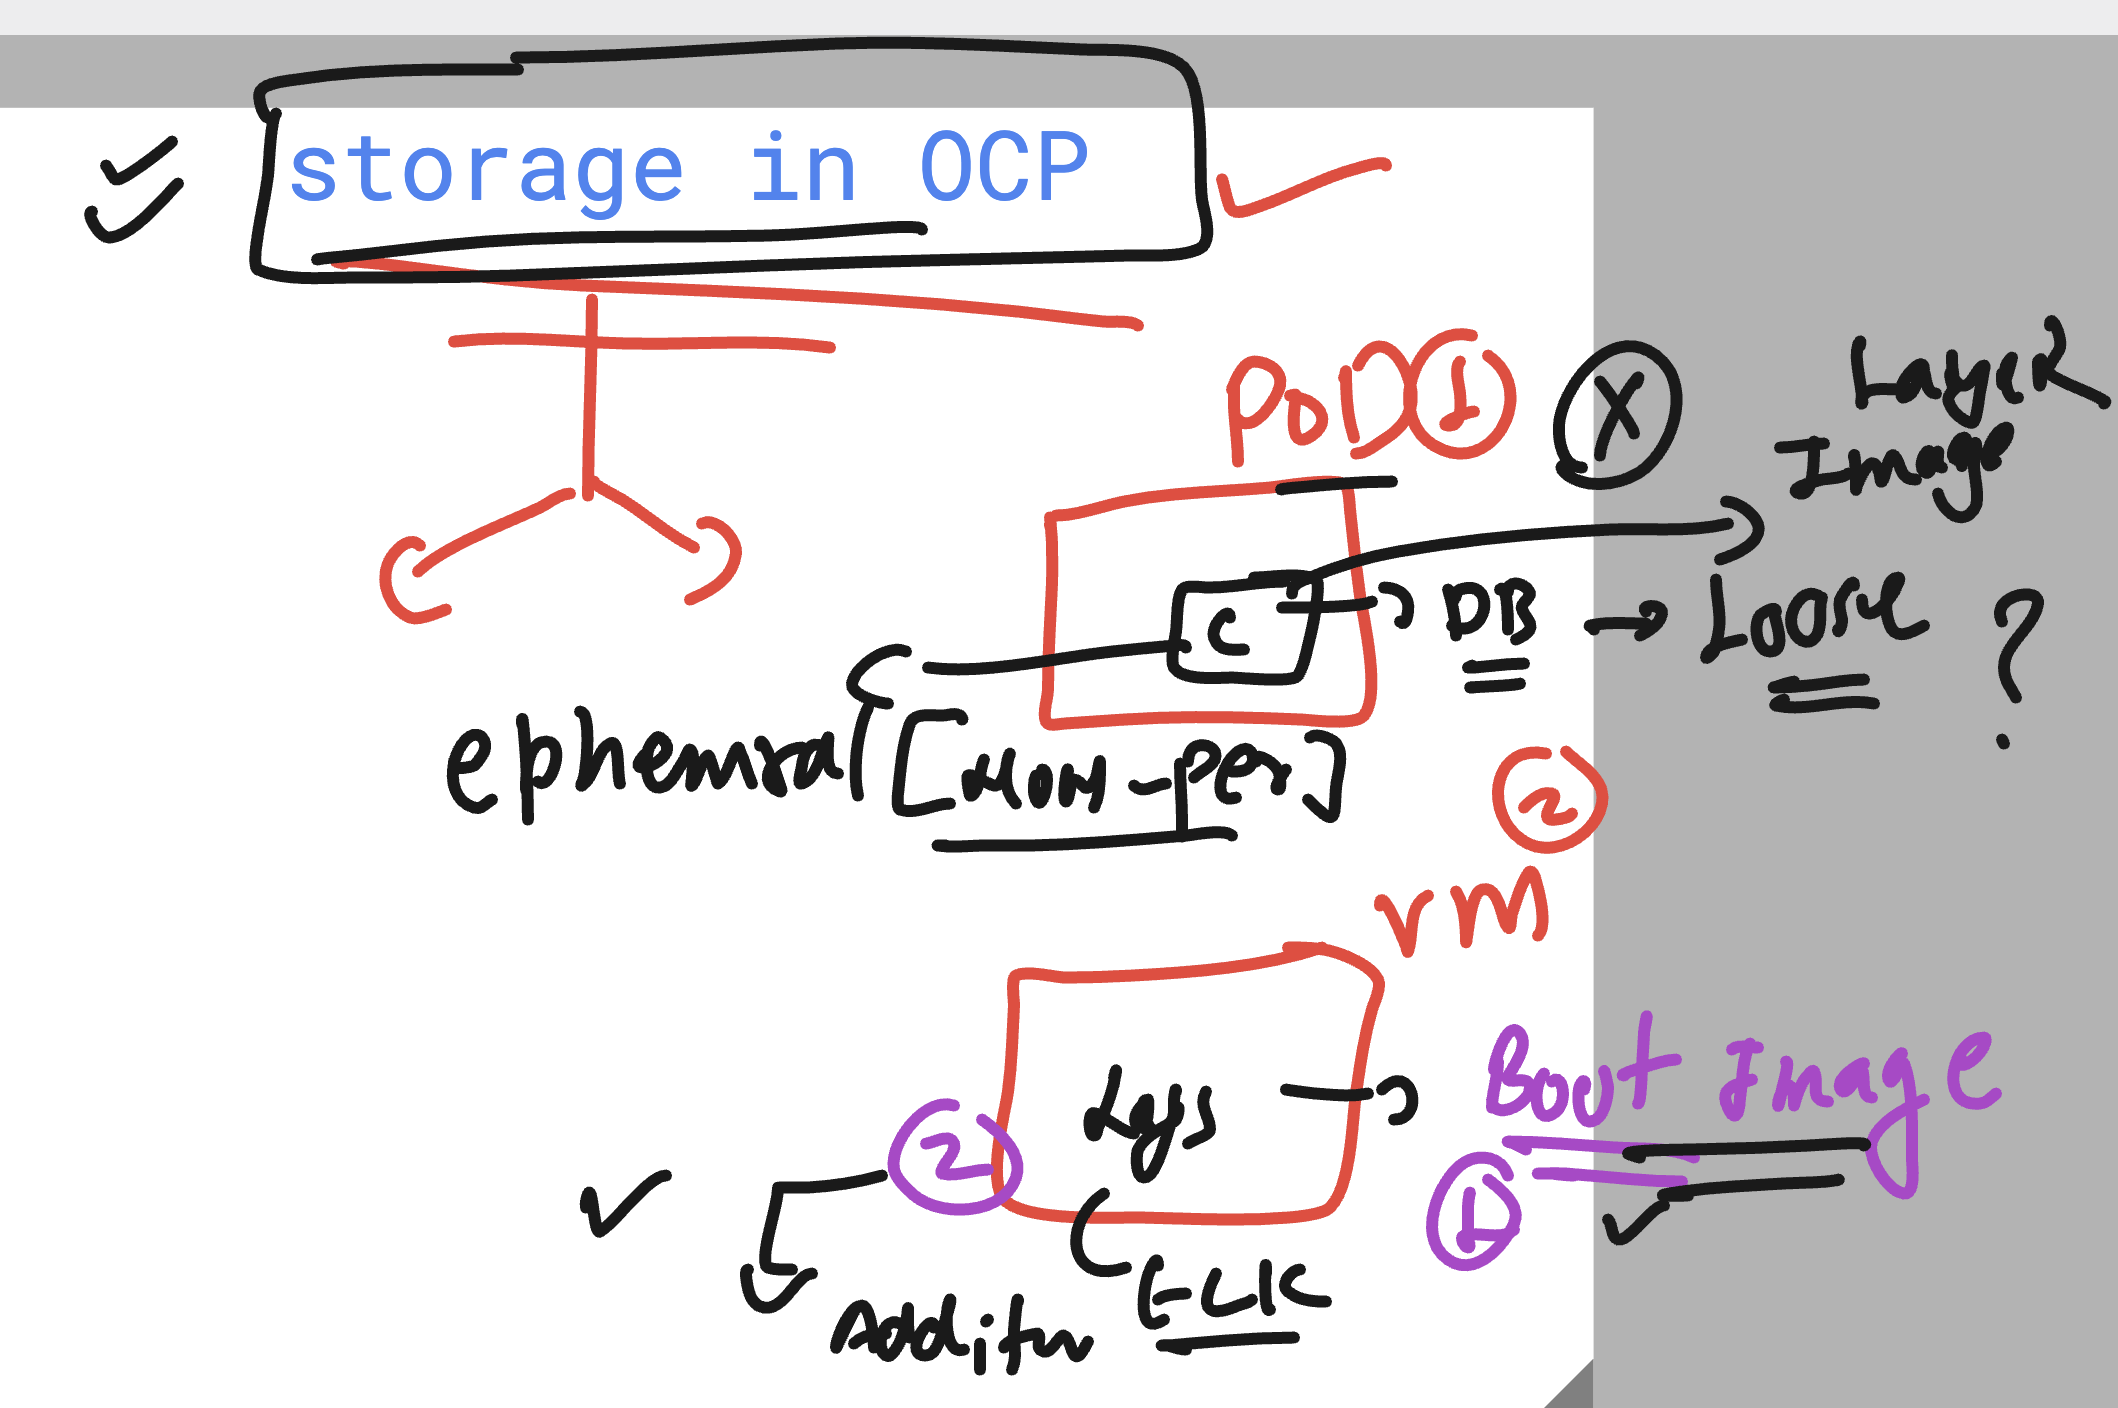 storage in OCP
POD 1
X
Layer
Image
C
DB
Loose ?
ephemral [Non-per]
2
vm
Boot Image
Logs
2
1
ELK